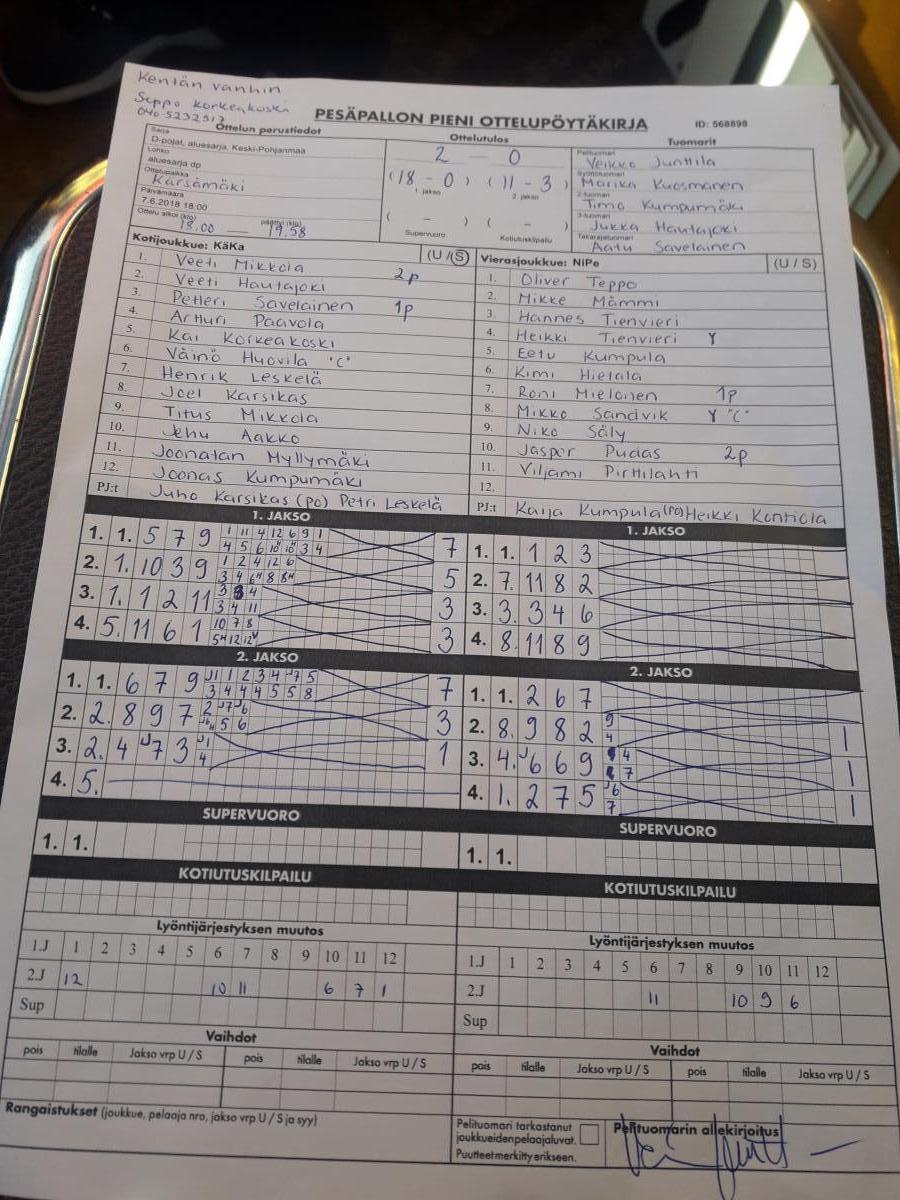 Kentän vanhin
Seppo Korkeakoski
PESÄPALLON PIENI OTTELUPÖYTÄKIRJA
ID: 568898
Ottelun perustiedot
Sarja
D-pojat, aluesarja, Keski-Pohjanmaa
Lohko
aluesarja dp
Ottelupaikka
Kärsämäki
Päivämäärä
7.6.2018 18:00
Ottelu alkoi (klo) päättyi (klo)
18.00 — 19.58
Ottelutulos
2 - 0
(18 - 0) (11 - 3)
1 jakso 2 jakso
( - ) ( - )
Supervuoro Kotiutuskilpailu
Tuomarit
Pelituomari
Veikko Junttila
Syöttötuomari
Marika Kuosmanen
2-tuomari
Timo Kumpumäki
3-tuomari
Jukka Hautajoki
Takarajatuomari
Aatu Savelainen
Kotijoukkue: KäKa (U / S)
1. Veeti Mikkola 2p
2. Veeti Hautajoki
3. Petteri Savelainen 1p
4. Artturi Paavola
5. Kai Korkeakoski
6. Väinö Huovila "C"
7. Henrik Leskelä
8. Joel Karsikas
9. Titus Mikkola
10. Jehu Aakko
11. Joonatan Myllymäki
12. Joonas Kumpumäki
PJ:t Juho Karsikas (PO) Petri Leskelä
Vierasjoukkue: NiPe (U / S)
1. Oliver Teppo
2. Mikke Mämmi
3. Hannes Tienvieri
4. Heikki Tienvieri Y
5. Eetu Kumpula
6. Kimi Hietala
7. Roni Mielonen 1p
8. Mikko Sandvik Y "C"
9. Niko Säly
10. Jasper Pudas 2p
11. Viljami Pirttilahti
12.
PJ:t Kaija Kumpula (PO) Heikki Kontiola
1. JAKSO
1. 1. 5 7 9 1 11 4 12 6 9 1 7
4 5 6 10 10 3 4
2. 1. 10 3 9 1 2 4 12 6 5
3. 1. 1 2 11 3
3 4 11
4. 5. 11 6 1 10 7 8 3
1. JAKSO
1. 1. 1 2 3
2. 7. 11 8 2
3. 3. 3 4 6
4. 8. 11 8 9
2. JAKSO
1. 1. 6 7 9 J1 1 2 3 4 J7 5 7
3 4 4 4 5 5 8
2. 2. 8 9 7 2 J7 J6 3
3. 2. 4 J7 3 J1 1
4
4. 5.
2. JAKSO
1. 1. 2 6 7
2. 8. 9 8 2 9 1
4
3. 4. J6 6 9 4 1
7
4. 1. 2 7 5 J6 1
7
SUPERVUORO
1. 1.
SUPERVUORO
1. 1.
KOTIUTUSKILPAILU
KOTIUTUSKILPAILU
Lyöntijärjestyksen muutos
1.J 1 2 3 4 5 6 7 8 9 10 11 12
2.J 12 10 11 6 7 1
Sup
Lyöntijärjestyksen muutos
1.J 1 2 3 4 5 6 7 8 9 10 11 12
2.J 11 10 9 6
Sup
Vaihdot
pois tilalle Jakso vrp U / S pois tilalle Jakso vrp U / S
Vaihdot
pois tilalle Jakso vrp U / S pois tilalle Jakso vrp U / S
Rangaistukset (joukkue, pelaaja nro, jakso vrp U / S ja syy)
Pelituomari tarkastanut
joukkueiden pelaajaluvat.
Puutteet merkitty erikseen.
Pelituomarin allekirjoitus